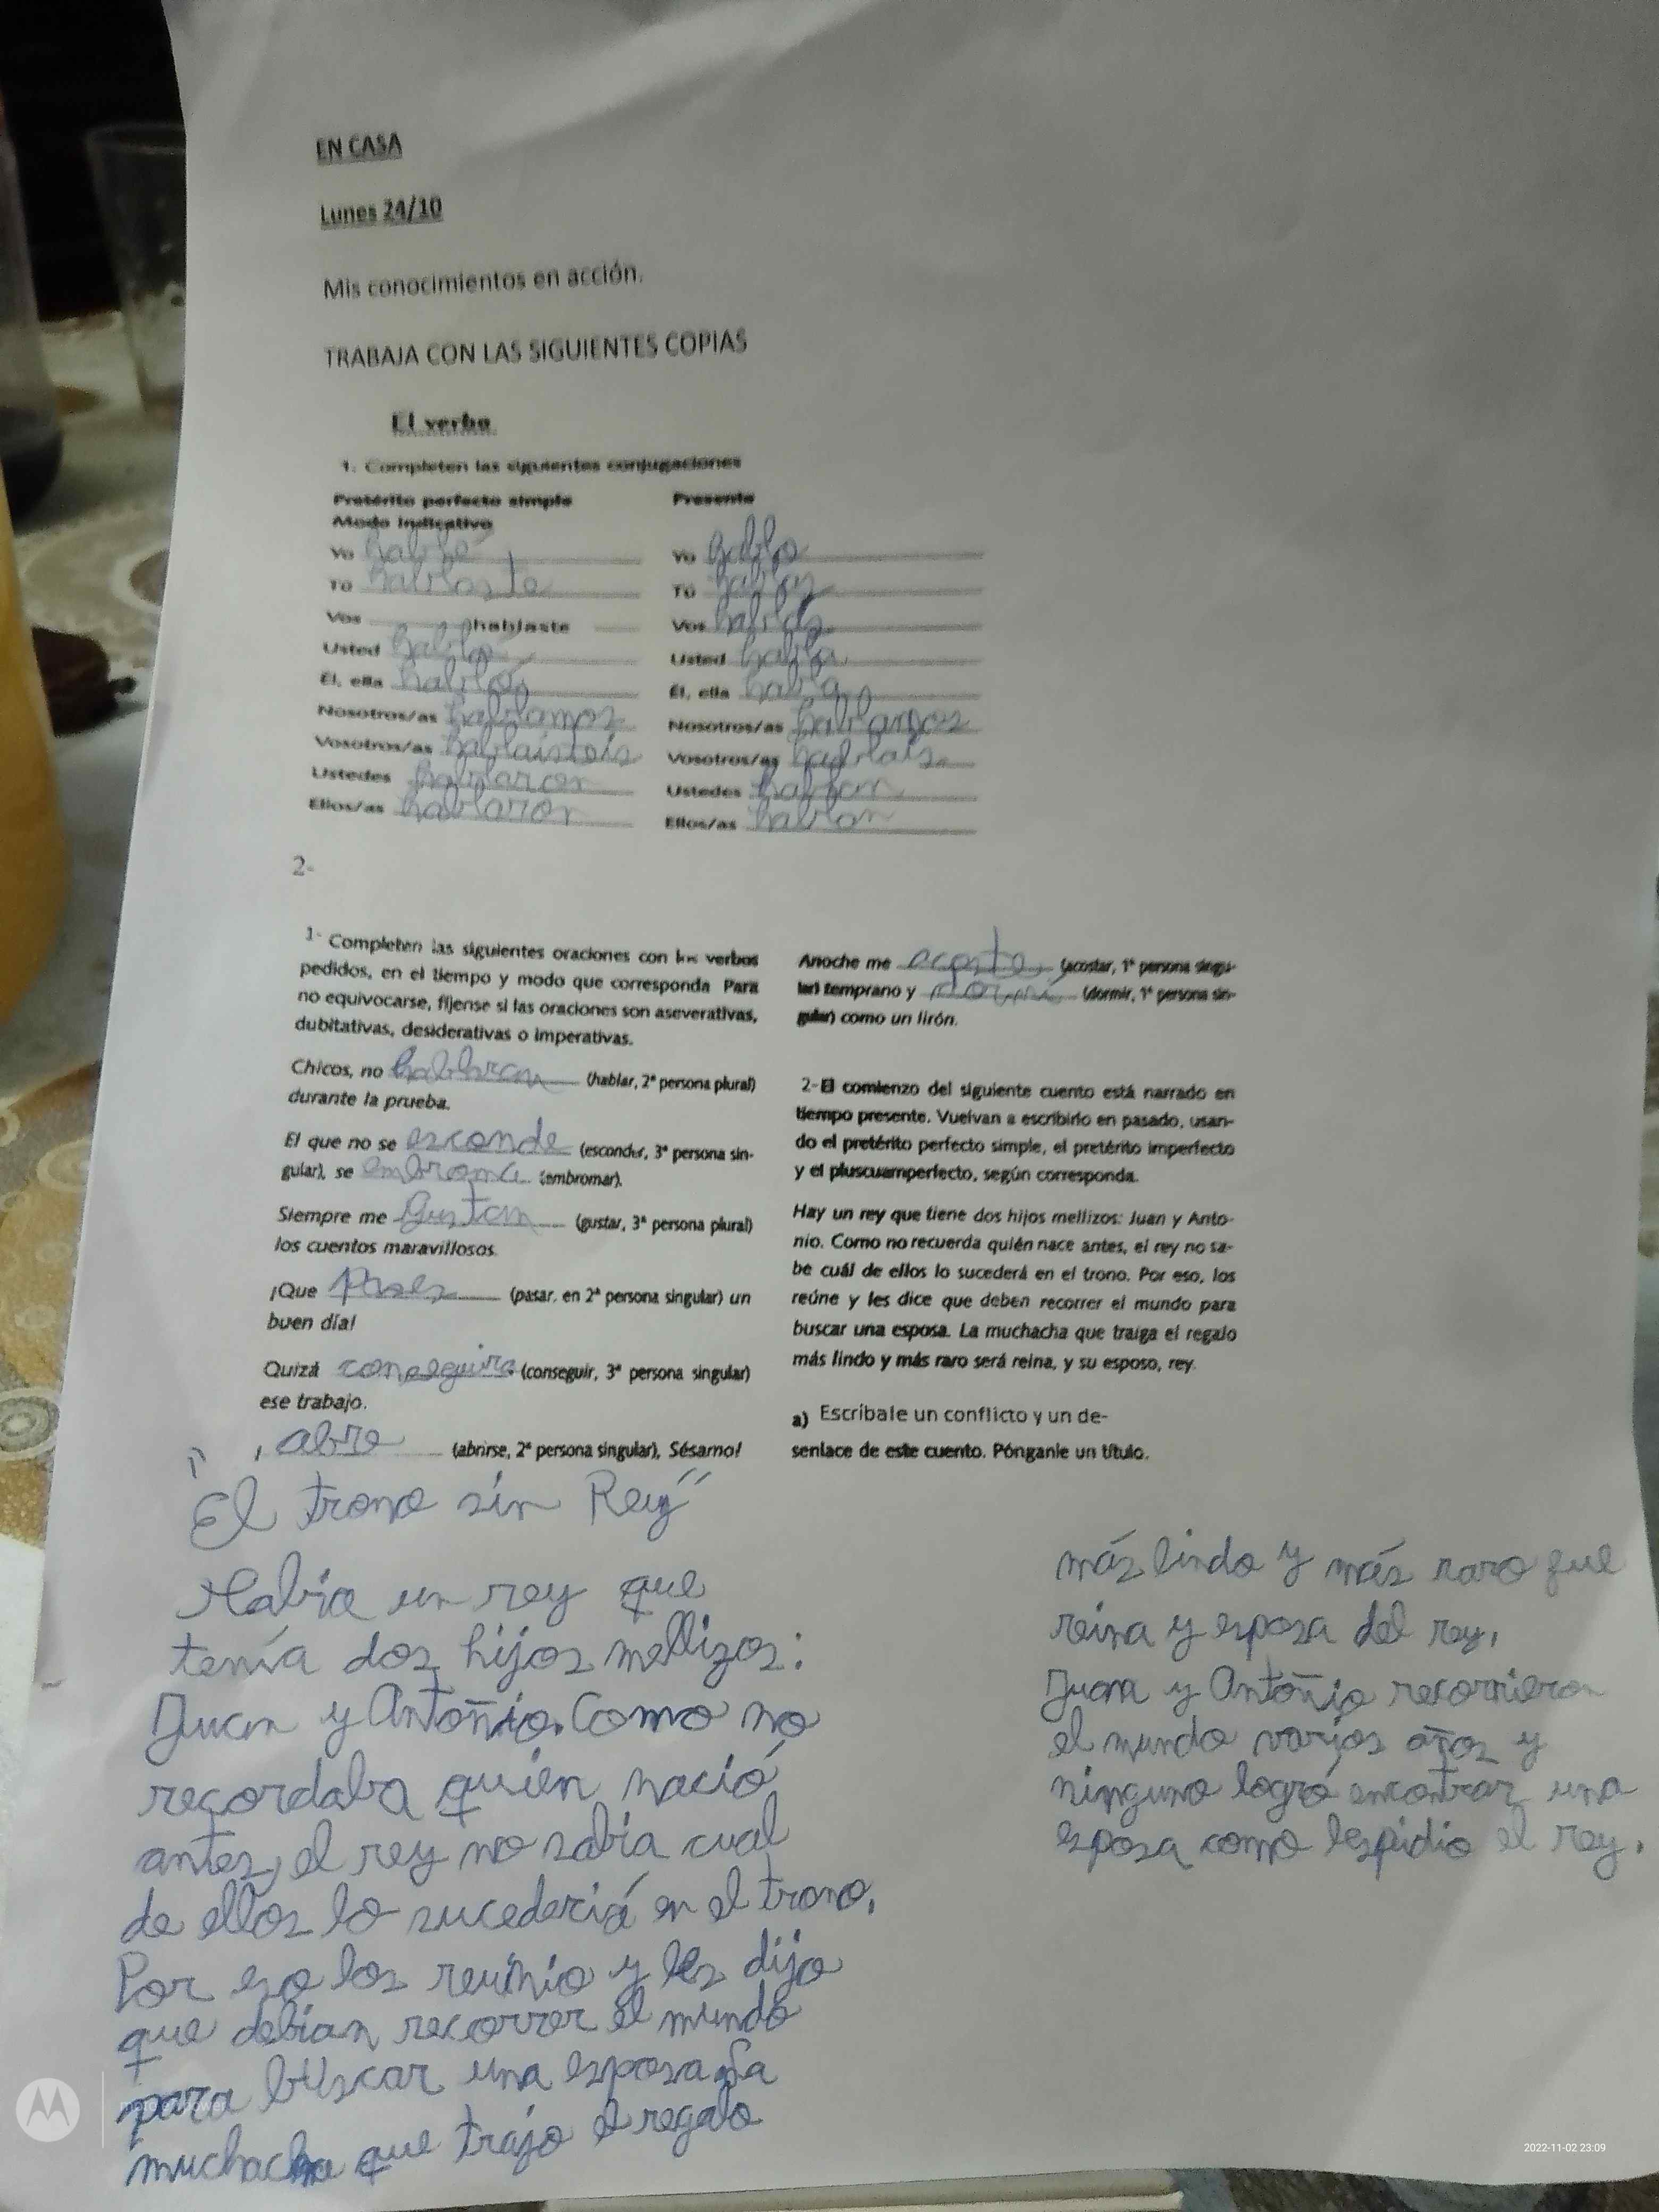 EN CASA
Lunes 24/10
Mis conocimientos en acción.
TRABAJA CON LAS SIGUIENTES COPIAS
El verbo
1. Completen las siguientes conjugaciones
Pretérito perfecto simple
Modo Indicativo
Yo hablé
Tú hablaste
Vos hablaste
Usted habló
Él, ella habló
Nosotros/as hablamos
Vosotros/as
Ustedes hablaron
Ellos/as hablaron
Presente
Yo hablo
Tú hablas
Vos hablás
Usted habla
Él, ella habla
Nosotros/as hablamos
Vosotros/as habláis
Ustedes hablan
Ellos/as hablan
2-
1- Completen las siguientes oraciones con los verbos
pedidos, en el tiempo y modo que corresponda Para
no equivocarse, fíjense si las oraciones son aseverativas,
dubitativas, desiderativas o imperativas.
Chicos, no hablaran (hablar, 2ª persona plural)
durante la prueba.
El que no se esconde (esconder, 3ª persona sin-
gular), se embroma (embromar).
Siempre me gustan (gustar, 3ª persona plural)
los cuentos maravillosos.
¡Que pases (pasar, en 2ª persona singular) un
buen día!
Quizá (conseguir, 3ª persona singular)
ese trabajo.
¡ abre (abrirse, 2ª persona singular), Sésamo!
Anoche me (acostar, 1ª persona singu-
lar) temprano y dormí (dormir, 1ª persona sin-
gular) como un lirón.
2- El comienzo del siguiente cuento está narrado en
tiempo presente. Vuelvan a escribirlo en pasado, usan-
do el pretérito perfecto simple, el pretérito imperfecto
y el pluscuamperfecto, según corresponda.
Hay un rey que tiene dos hijos mellizos: Juan y Anto-
nio. Como no recuerda quién nace antes, el rey no sa-
be cuál de ellos lo sucederá en el trono. Por eso, los
reúne y les dice que deben recorrer el mundo para
buscar una esposa. La muchacha que traiga el regalo
más lindo y más raro será reina, y su esposo, rey.
a) Escríbale un conflicto y un de-
senlace de este cuento. Pónganle un título.
"El trono sin Rey"
Había un rey que
tenía dos hijos mellizos:
Juan y Antoñio. Como no
recordaba quien nació
antes, el rey no sabia cual
de ellos lo sucederiá en el trono.
Por eso los reunio y les dijo
que debian recorrer el mundo
para buscar una esposa. La
muchacha que trajo el regalo
más lindo y más raro fue
reina y esposa del rey.
Juan y Antoñio recorrieron
el mundo varios años y
ninguno logró encontrar una
esposa como lespidio el rey.
2022-11-02 23:09